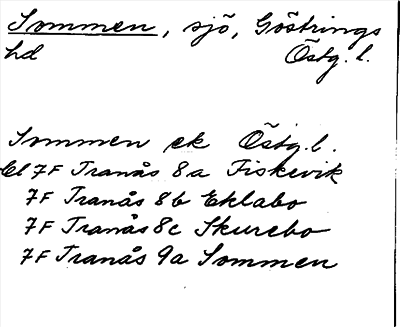 Sommen, sjö, Göstrings
hd Östg. l.
Sommen ek Östg. l.
Bl 7F Tranås 8a Fiskevik
7F Tranås 8b Eklabo
7F Tranås 8c Skurebo
7F Tranås 9a Sommen